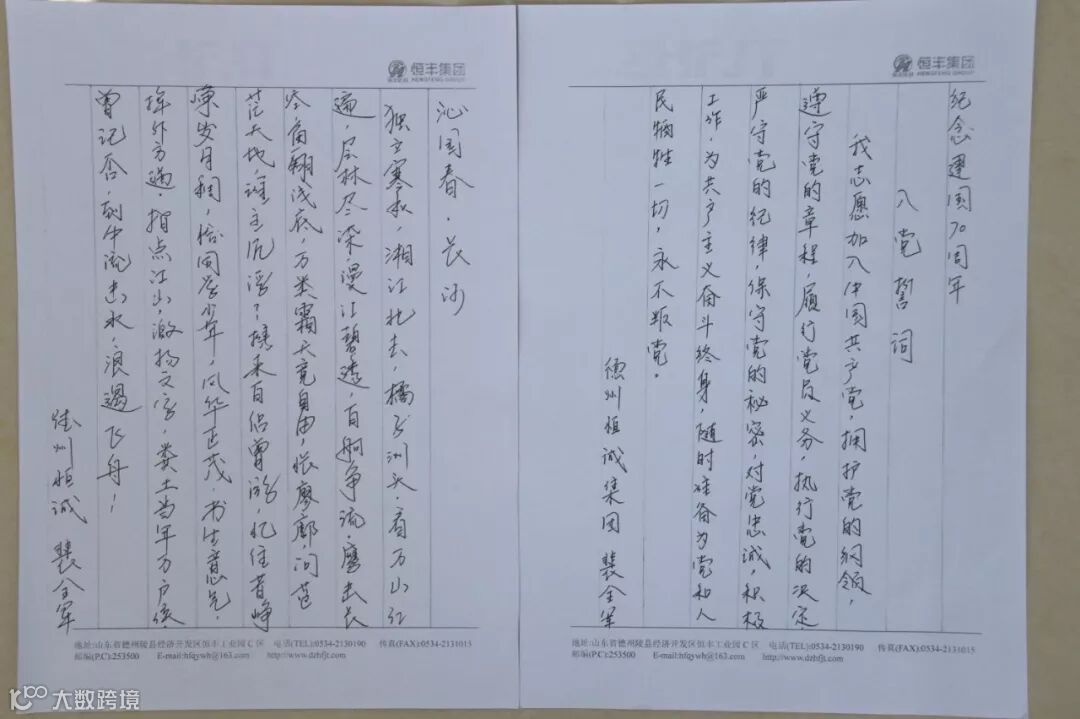 恒丰集团
HENGFENG GROUP
纪念建国70周年
入党誓词
我志愿加入中国共产党，拥护党的纲领，
遵守党的章程，履行党员义务，执行党的决定
严守党的纪律，保守党的秘密，对党忠诚，积极
工作，为共产主义奋斗终身，随时准备为党和人
民牺牲一切，永不叛党。
德州恒诚集团 裴全军
地址:山东省德州陵县经济开发区恒丰工业园C区 电话(TEL):0534-2130190 传真(FAX):0534-2131015
邮编(P.C):253500 E-mail:hfqywh@163.com http://www.dzhfjt.com
恒丰集团
HENGFENG GROUP
沁园春.长沙
独立寒秋，湘江北去，橘子洲头，看万山红
遍，层林尽染，漫江碧透，百舸争流，鹰击长
空，鱼翔浅底，万类霜天竞自由，怅寥廓，问苍
茫大地，谁主沉浮？携来百侣曾游，忆往昔峥
嵘岁月稠，恰同学少年，风华正茂，书生意气，
挥斥方遒，指点江山，激扬文字，粪土当年万户侯
曾记否，到中流击水，浪遏飞舟！
德州恒诚 裴全军
地址:山东省德州陵县经济开发区恒丰工业园C区 电话(TEL):0534-2130190 传真(FAX):0534-2131015
邮编(P.C):253500 E-mail:hfqywh@163.com http://www.dzhfjt.com
大数跨境